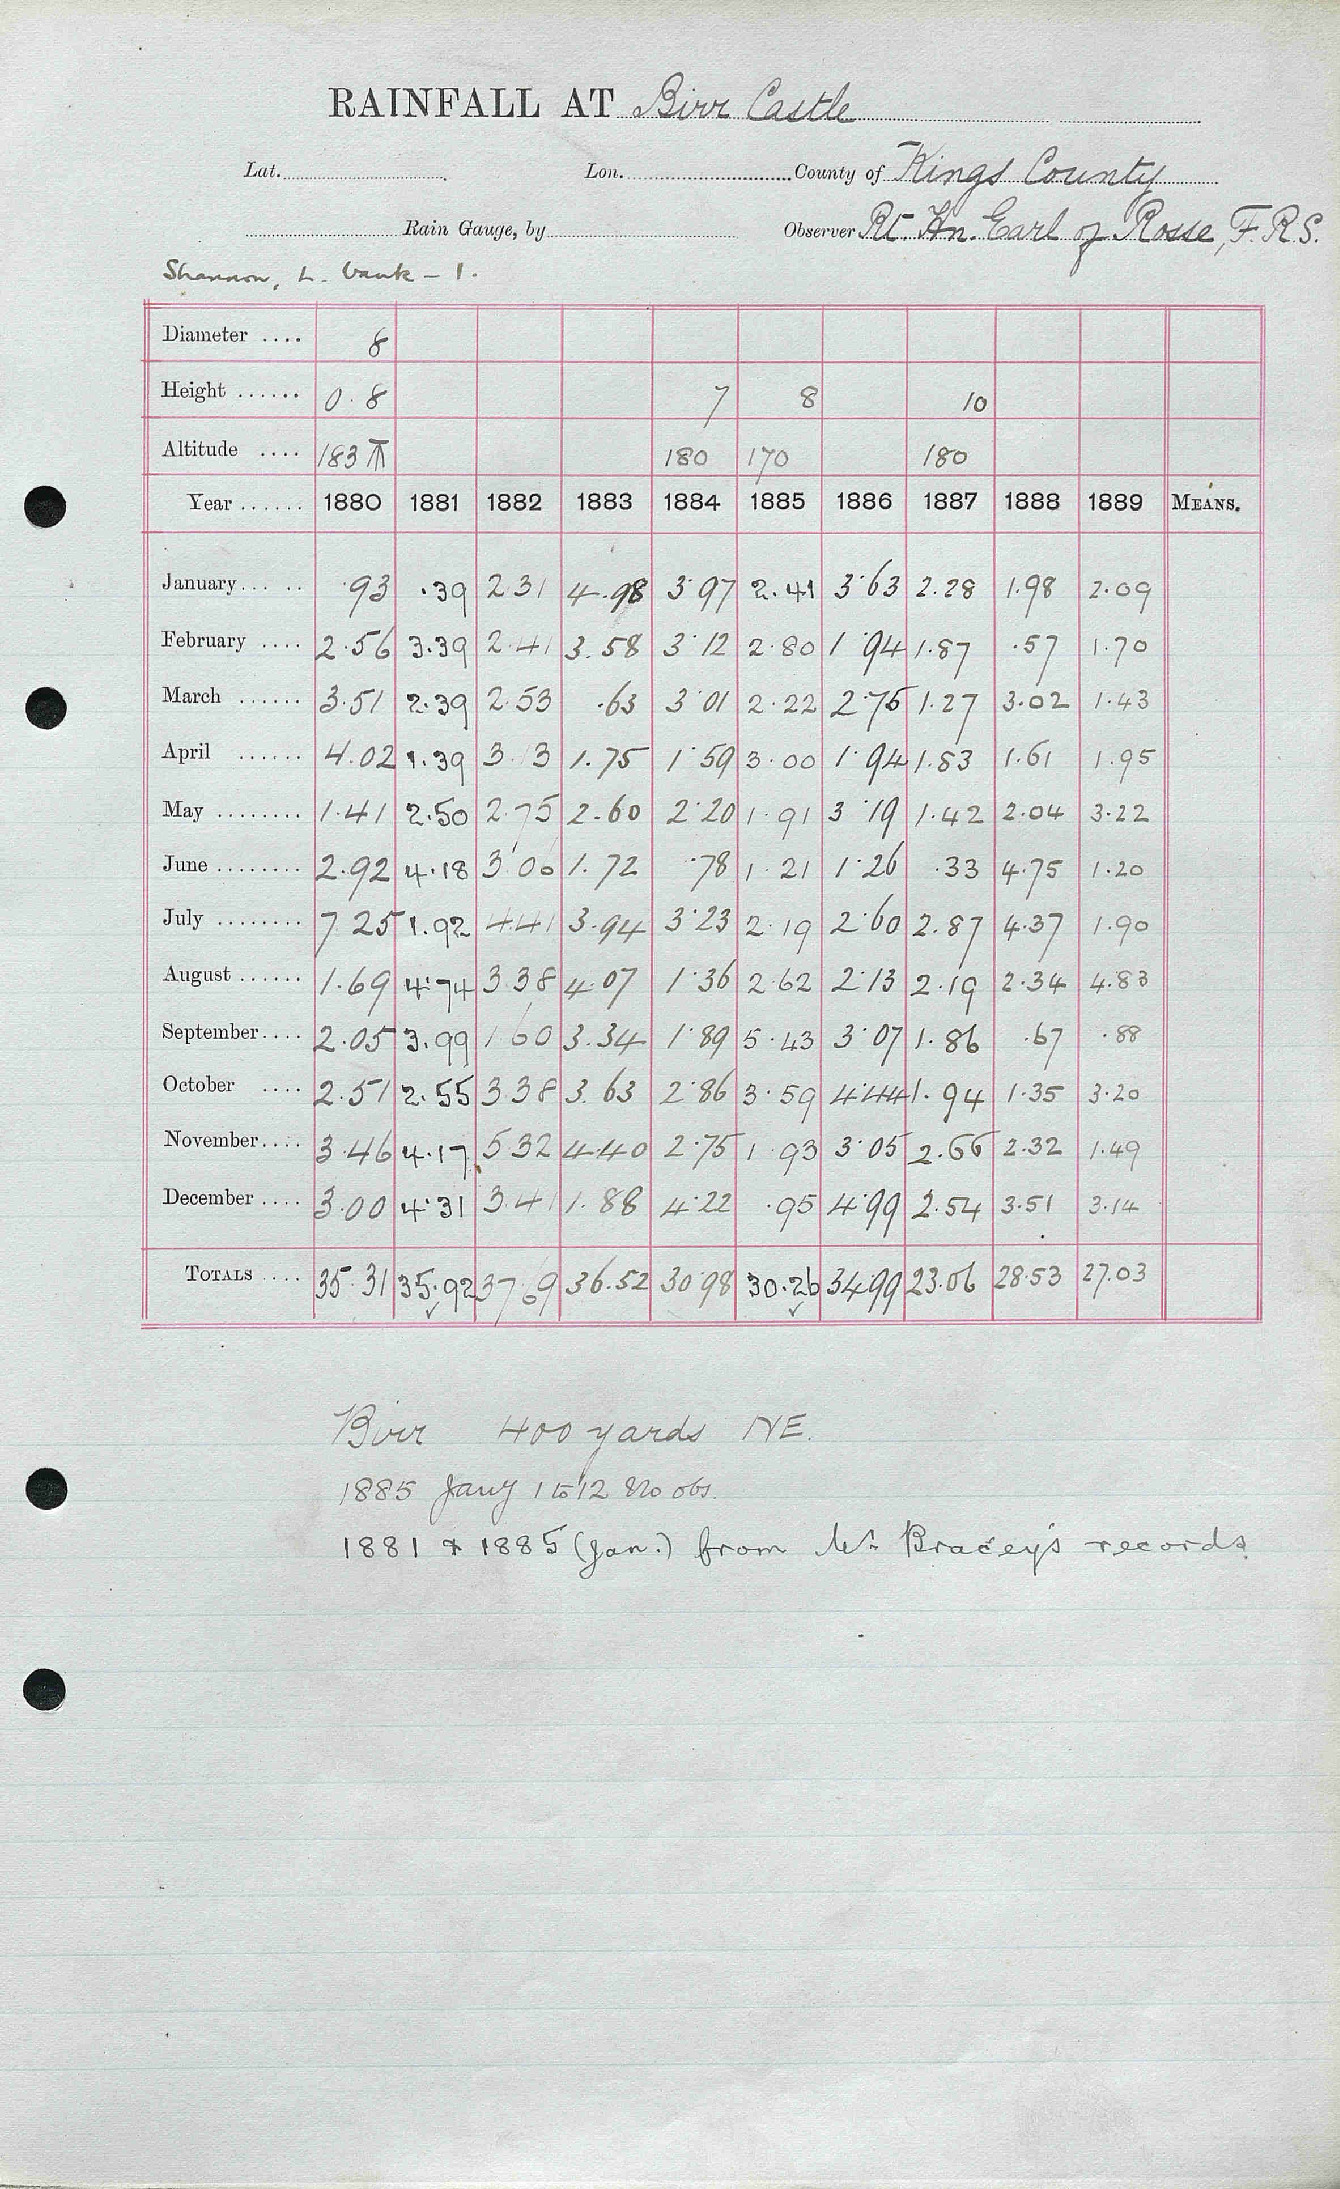 RAINFALL AT Birr Castle
Lat. Lon. County of Kings County
Rain Gauge, by Observer Rt. Hn. Earl of Rosse, F.R.S.
Shannon, L. bank - 1.
Diameter .... 8
Height ...... 0.8 7 8 10
Altitude .... 183 180 170 180
Year ...... 1880 1881 1882 1883 1884 1885 1886 1887 1888 1889 MEANS.
January ... .. .93 .39 2.31 4.98 3.97 2.41 3.63 2.28 1.98 2.09
February .... 2.56 3.39 2.41 3.58 3.12 2.80 1.94 1.87 .57 1.70
March ...... 3.51 2.39 2.53 .63 3.01 2.22 2.75 1.27 3.02 1.43
April ...... 4.02 1.39 3.13 1.75 1.59 3.00 1.94 1.83 1.61 1.95
May ........ 1.41 2.50 2.75 2.60 2.20 1.91 3.19 1.42 2.04 3.22
June ........ 2.92 4.18 3.06 1.72 .78 1.21 1.26 .33 4.75 1.20
July ........ 7.25 1.92 4.41 3.94 3.23 2.19 2.60 2.87 4.37 1.90
August ...... 1.69 4.74 3.38 4.07 1.36 2.62 2.13 2.19 2.34 4.83
September .... 2.05 3.99 1.60 3.34 1.89 5.43 3.07 1.86 .67 .88
October .... 2.51 2.55 3.38 3.63 2.86 3.59 4.44 1.94 1.35 3.20
November .... 3.46 4.17 5.32 4.40 2.75 1.93 3.05 2.66 2.32 1.49
December .... 3.00 4.31 3.41 1.88 4.22 .95 4.99 2.54 3.51 3.14
TOTALS .... 35.31 35.92 37.69 36.52 30.98 30.26 34.99 23.06 28.53 27.03
Birr 400 yards NE.
1885 Jany 1 to 12 No obs.
1881 & 1885 (Jan.) from Mr Bracey's records